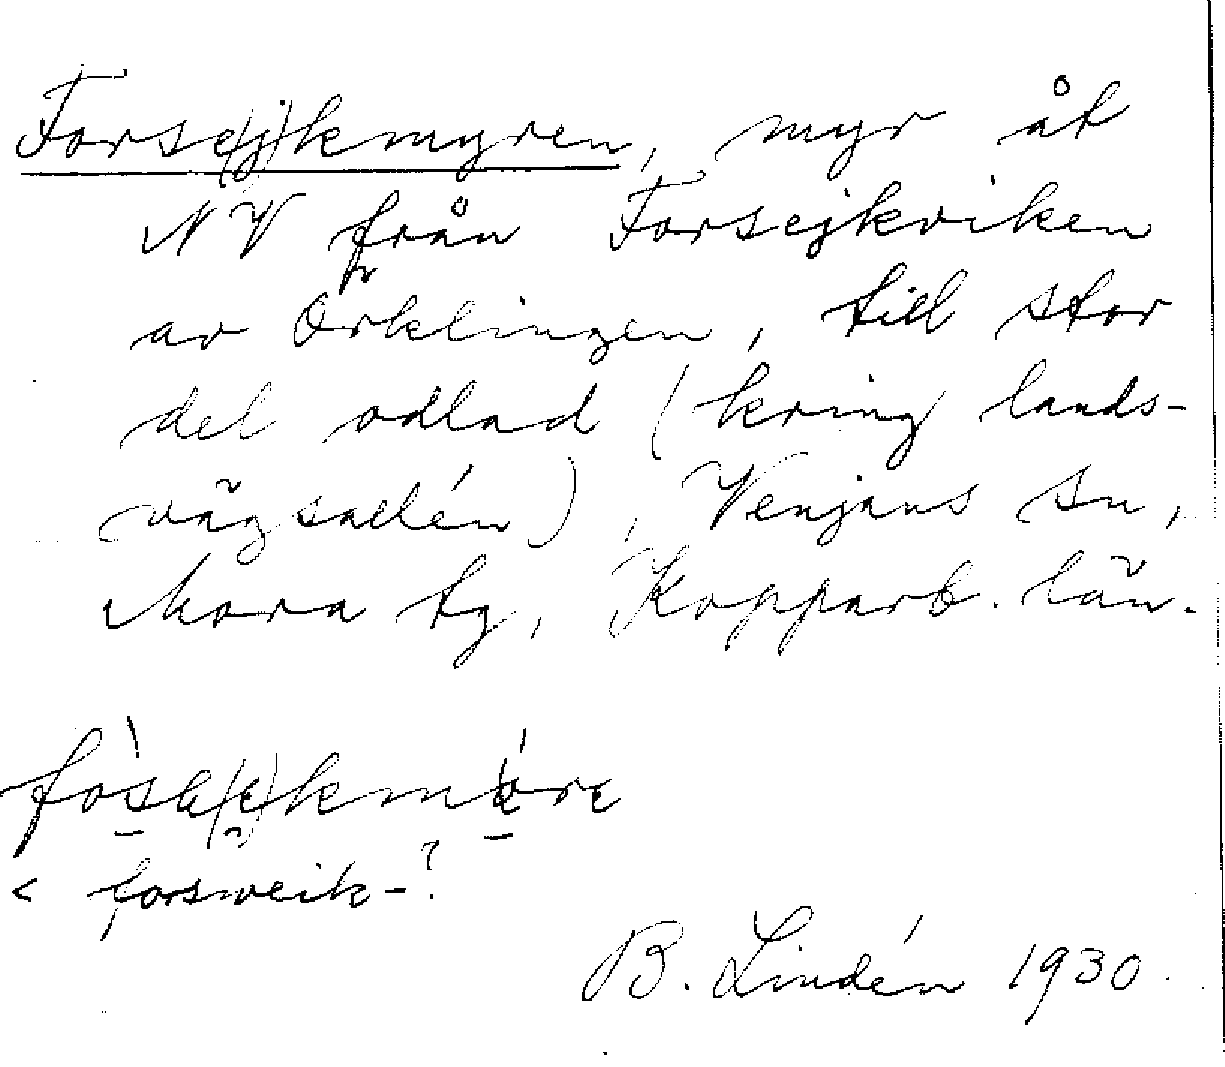 Forse(j)kmyren, myr åt
NV från Forsejkviken
av Örklingen, till stor
del odlad (kring lands-
vägsallén), Venjans sn,
Mora tg, Kopparb. län.
< forsweik-?
B. Lindén 1930.